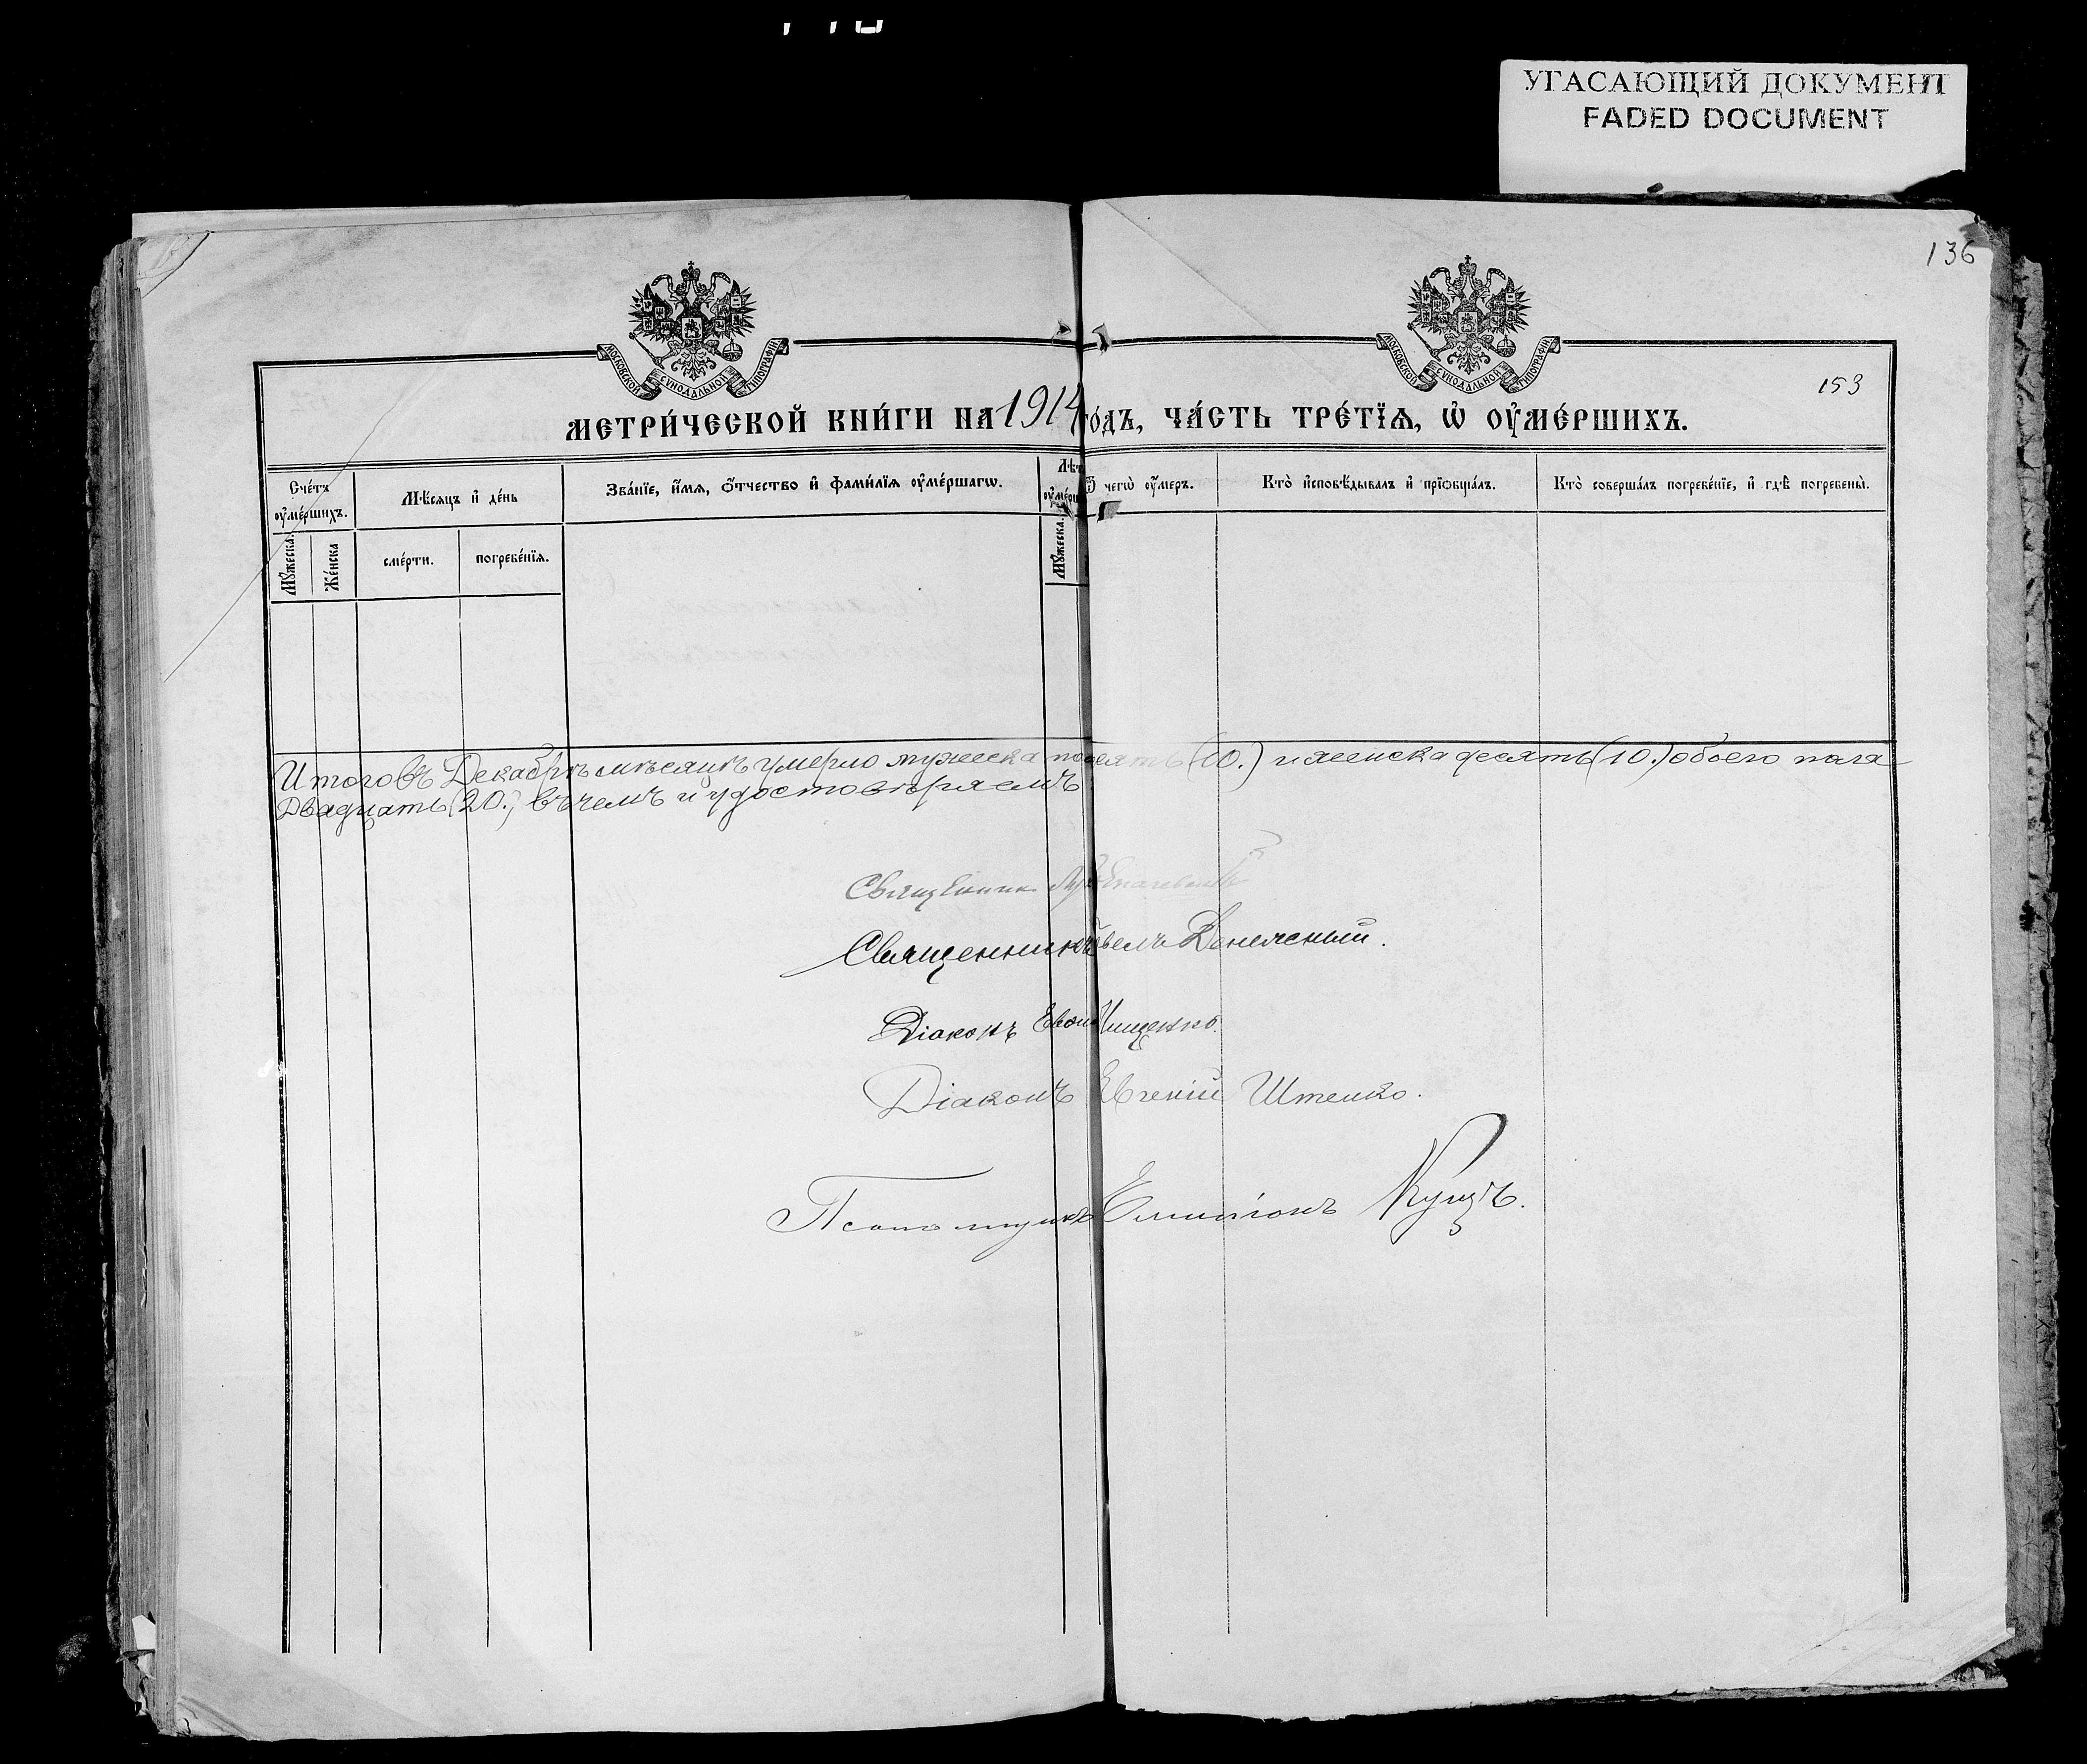 УГАСАЮЩИЙ ДОКУМЕНТ
FADED DOCUMENT
136
МОСКОВСКОЙ СѴНОДАЛЬНОЙ ТИПОГРАФІИ
МОСКОВСКОЙ СѴНОДАЛЬНОЙ ТИПОГРАФІИ
153
МЕТРИ́ЧЕСКОЙ КНИ́ГИ НА 1914 ГО́ДЪ, ЧА́СТЬ ТРЕ́ТЇѦ, Ѡ҆ ОУ҆МЕ́РШИХЪ.
Сче́тъ оу҆ме́ршихъ.
Мѣ́сяцъ и҆ де́нь
Зва́нїе, и҆́мѧ, ѻ҆́тчество и҆ фами́лїѧ оу҆ме́ршагѡ.
Лѣт
оу҆ме́рш
Ѿ чегѡ̀ оу҆́меръ.
Кто̀ и҆сповѣ́дывалъ и҆ прїѡбща́лъ.
Кто̀ соверша́лъ погребе́нїе, и҆ гдѣ̀ погребены̀.
Мꙋ́жеска.
Же́нска
сме́рти.
погребе́нїѧ.
Мꙋ́жеска.
Итого въ Декабрѣ мѣсяцѣ умерло мужеска по десять (10.) и женска десять (10.) обоего пола
Двадцать (20.), въ чемъ и удостовѣряемъ
Священникъ
Священникъ Донецкій.
Діаконъ Ищенко.
Діаконъ Евгеній Штенко.
Псаломщикъ Кущъ.